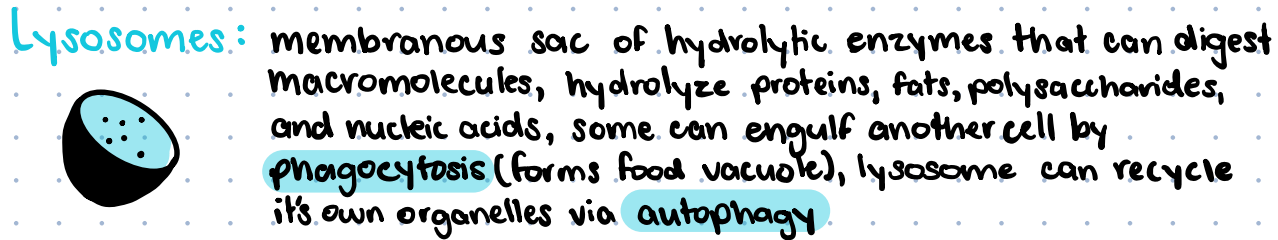 Lysosomes: membranous sac of hydrolytic enzymes that can digest
macromolecules, hydrolyze proteins, fats, polysaccharides,
and nucleic acids, some can engulf another cell by
phagocytosis (forms food vacuole), lysosome can recycle
it's own organelles via autophagy